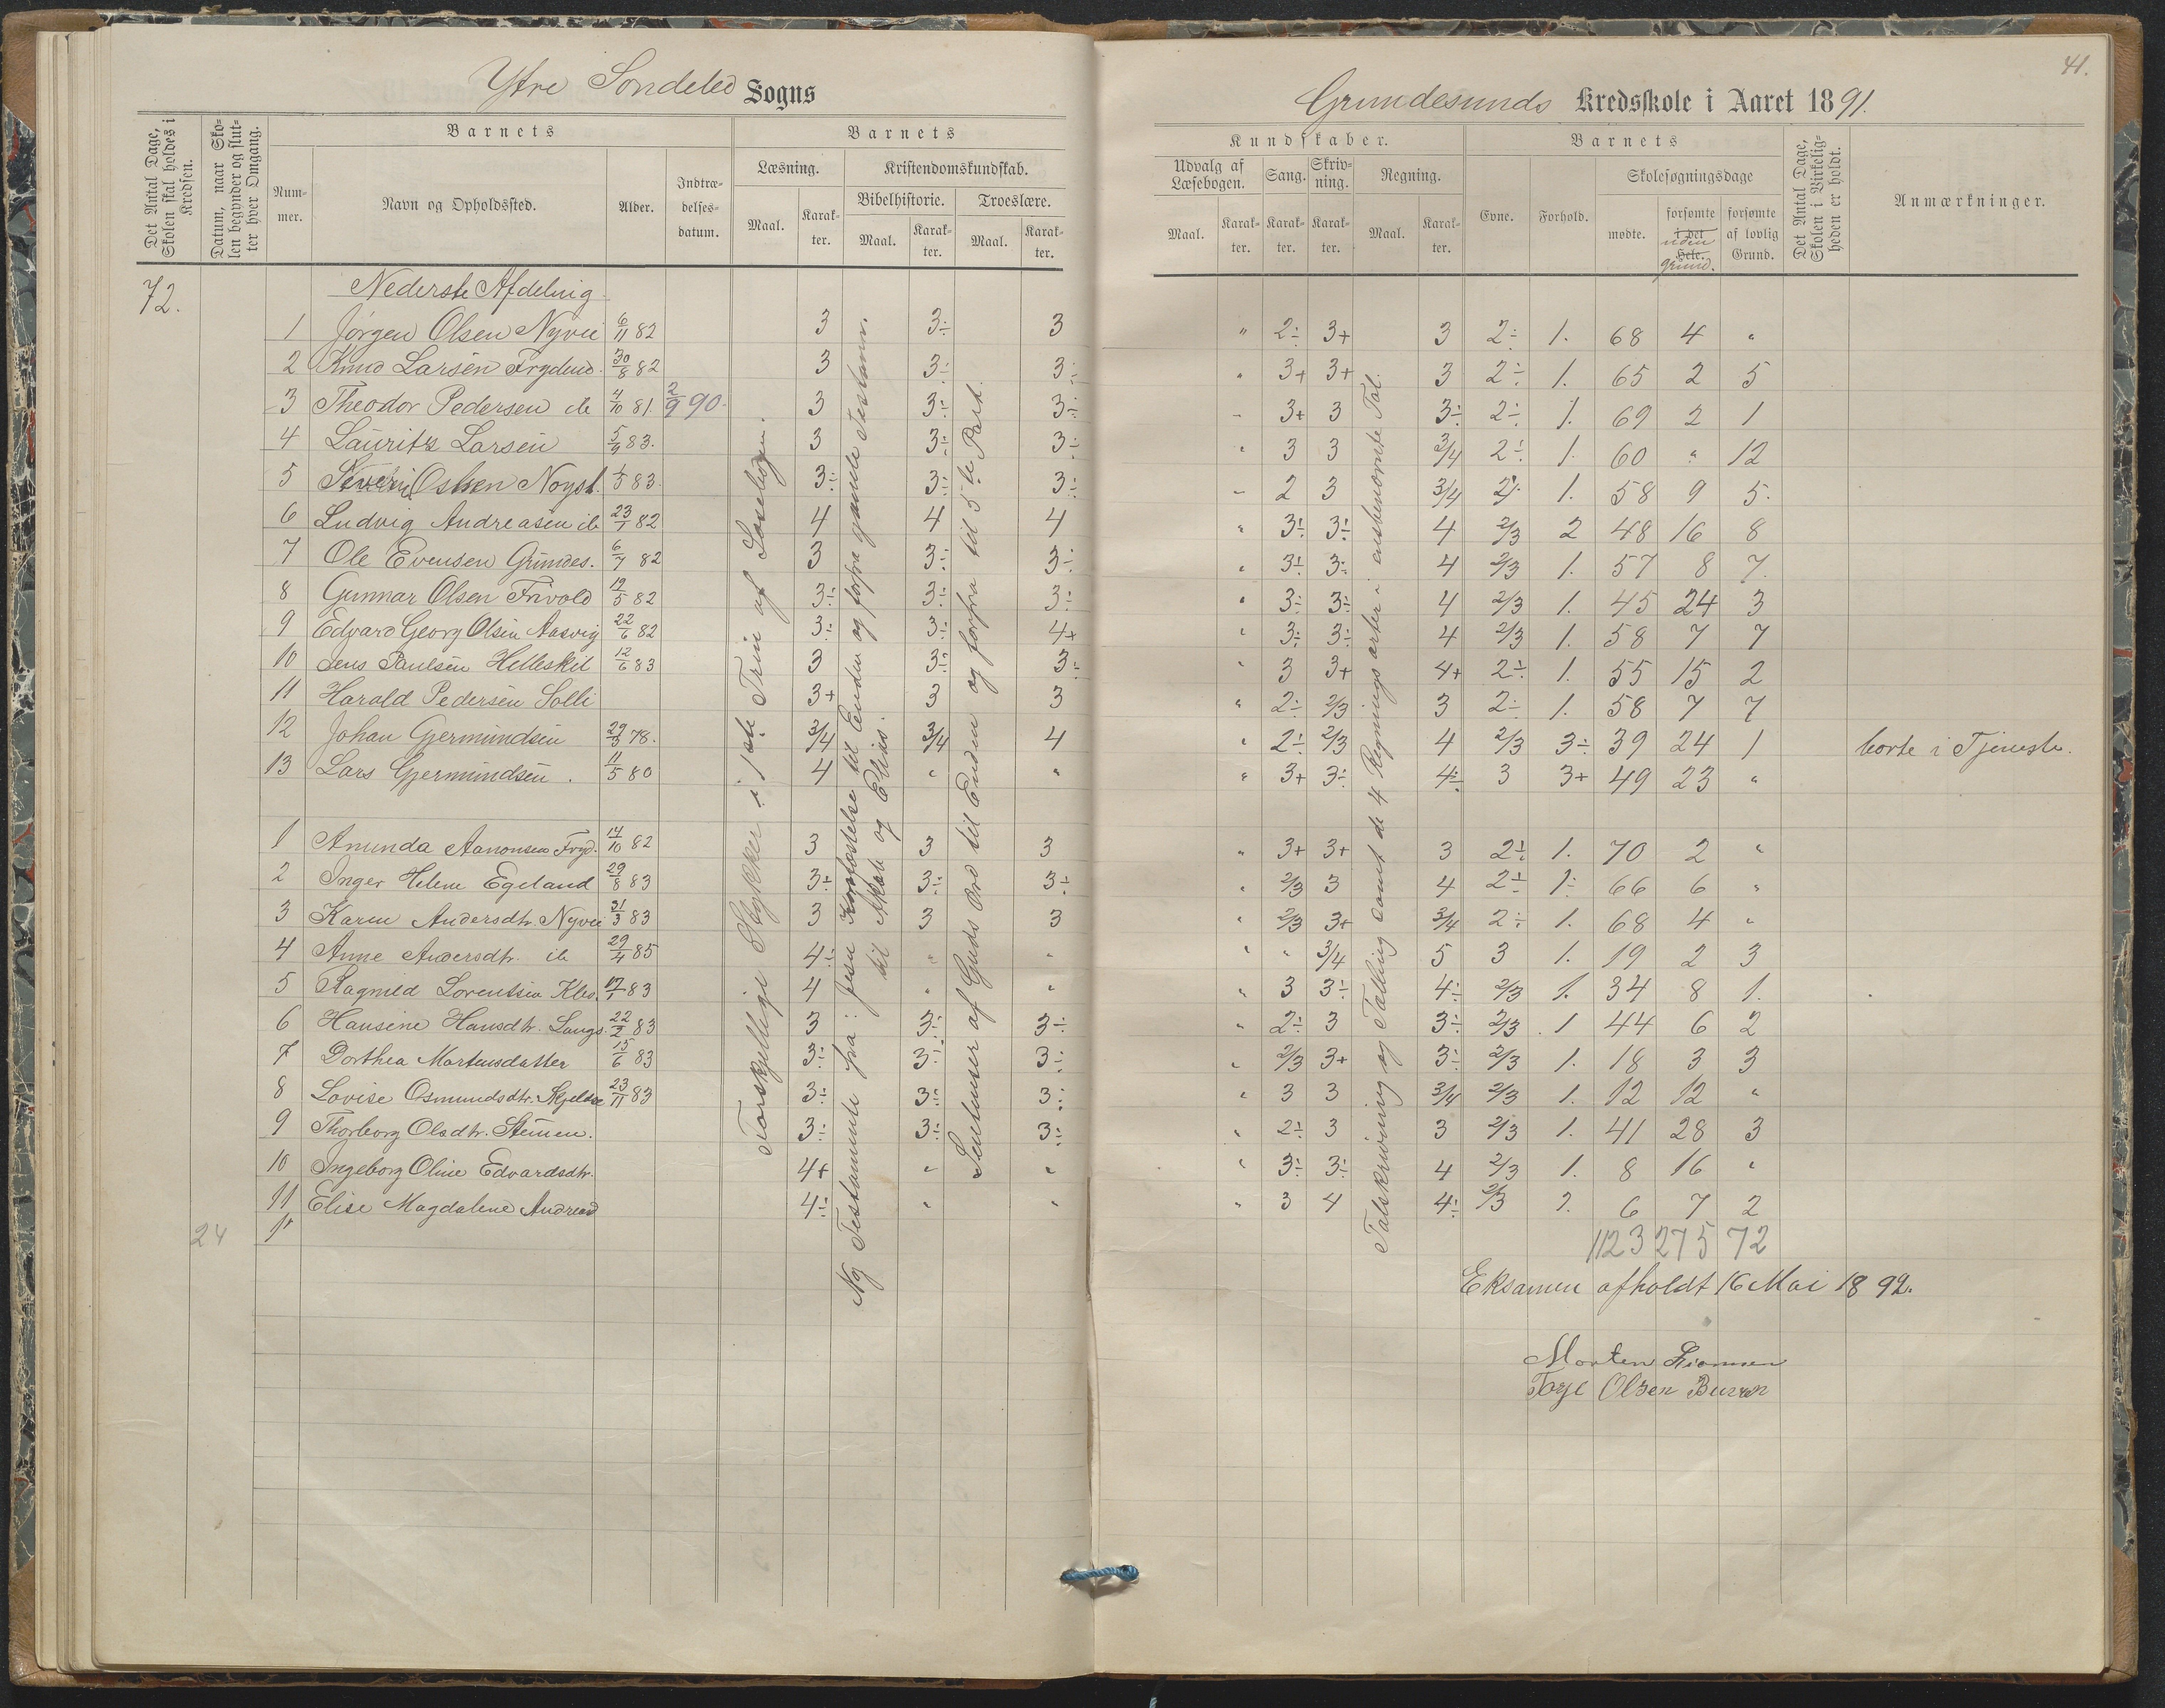 Ytre Sondeled Sogns
Grundesunds Kredsskole i Aaret 1891.
41.
Det Antal Dage, Skolen skal holdes i Kredsen.
Datum, naar Skolen begynder og slutter hver Omgang.
Nummer.
Barnets
Navn og Opholdssted.
Alder.
Indtrædelsesdatum.
Barnets
Læsning.
Maal.
Karakter.
Kristendomskundskab.
Bibelhistorie.
Maal.
Karakter.
Troeslære.
Maal.
Karakter.
Kundskaber.
Udvalg af Læsebogen.
Maal.
Karakter.
Sang.
Karakter.
Skrivning.
Karakter.
Regning.
Maal.
Karakter.
Barnets
Evne.
Forhold.
Skolesøgningsdage
mødte.
forsømte i det Hele. uden grund.
forsømte af lovlig Grund.
Det Antal Dage, Skolen i Virkeligheden er holdt.
Anmærkninger.
72.
Nederste Afdeling
1 Jørgen Olsen Nyvei 6/11 82 3 3÷ 3 " 2÷ 3+ 3 2÷ 1. 68 4 "
2 Knud Larsen Frydend. 30/8 82 3 3÷ 3÷ " 3+ 3+ 3 2÷ 1. 65 2 5
3 Theodor Pedersen ib 4/10 81. 2/9 90. 3 3÷ 3÷ " 3+ 3 3÷ 2÷ 1. 69 2 1
4 Lauritz Larsen 5/9 83. 3 3÷ 3÷ " 3 3 3/4 2÷ 1. 60 " 12
5 Severin Olsen Noyst. 1/5 83. 3÷ 3÷ 3÷ " 2 3 3/4 2÷ 1. 58 9 5.
6 Ludvig Andreasen ib 23/1 82 4 4 4 " 3÷ 3÷ 4 2/3 2 48 16 8
7 Ole Evensen Grundes. 6/7 82 3 3÷ 3÷ " 3÷ 3÷ 4 2/3 1. 57 8 7.
8 Gunnar Olsen Frivold 12/5 82 3÷ 3÷ 3÷ " 3÷ 3÷ 4 2/3 1. 45 24 3
9 Edvard Georg Olsen Aasvig 22/6 82 3÷ 3÷ 4+ " 3÷ 3÷ 4 2/3 1. 58 7 7
10 Jens Paulsen Helleskil 12/6 83 3 3÷ 3÷ " 3 3+ 4+ 2÷ 1. 55 15 2
11 Harald Pedersen Solli 3+ 3 3 " 2÷ 2/3 3 2÷ 1. 58 7 7
12 Johan Gjermundsen 29/3 78. 3/4 3/4 4 " 2÷ 2/3 4 2/3 3÷ 39 24 1 borte i Tjeneste.
13 Lars Gjermundsen. 11/5 80 4 " " " 3+ 3÷ 4÷ 3 3+ 49 23 "
1 Anunda Aanonsen Fryd. 14/10 82 3 3 3 " 3+ 3+ 3 2÷ 1. 70 2 "
2 Inger Helene Egeland 29/8 83 3÷ 3÷ 3÷ " 2/3 3 4 2÷ 1÷ 66 6 "
3 Karen Andersdtr. Nyvei 31/3 83 3 3 3 " 2/3 3+ 3/4 2÷ 1. 68 4 "
4 Anne Andersdtr. ib 29/4 85 4÷ " " " " 3/4 5 3 1. 19 2 3
5 Ragnild Lorentsen Klev. 17/1 83 4 " " " 3 3÷ 4÷ 2/3 1. 34 8 1.
6 Hansine Hansdtr. Langs. 22/2 83 3 3÷ 3÷ " 2÷ 3 3÷ 2/3 1 44 6 2
7 Dorthea Mortensdatter 15/6 83 3÷ 3÷ 3÷ " 2/3 3+ 3÷ 2/3 1. 18 3 3
8 Lovise Osmundsdtr. 23/11 83 3÷ 3÷ 3÷ " 3 3 3/4 2/3 1. 12 12 "
9 Thorborg Olsdtr. Stenen. 3÷ 3÷ 3÷ " 2÷ 3 3 2/3 1. 41 28 3
10 Ingeborg Oline Edvardsdtr. 4+ " " " 3÷ 3÷ 4 2/3 1. 8 16 "
11 Elise Magdalene Andreasd 4÷ " " " 3 4 4÷ 2/3 1. 6 7 2
24
1123 275 72
Forskjellige Stykker i 1ste Trin af Læsebogen.
Ny Testamente fra: Jesu til Enden og forfra gamle Testam. til Akab og Elias.
Sentenser af Guds Ord til Enden og forfra til 5te Part.
Talskrivning og Talling samt de 4 Regningsarter i ensbenævnte Tal.
Eksamen afholdt 16 Mai 1892.
Morten
Olsen